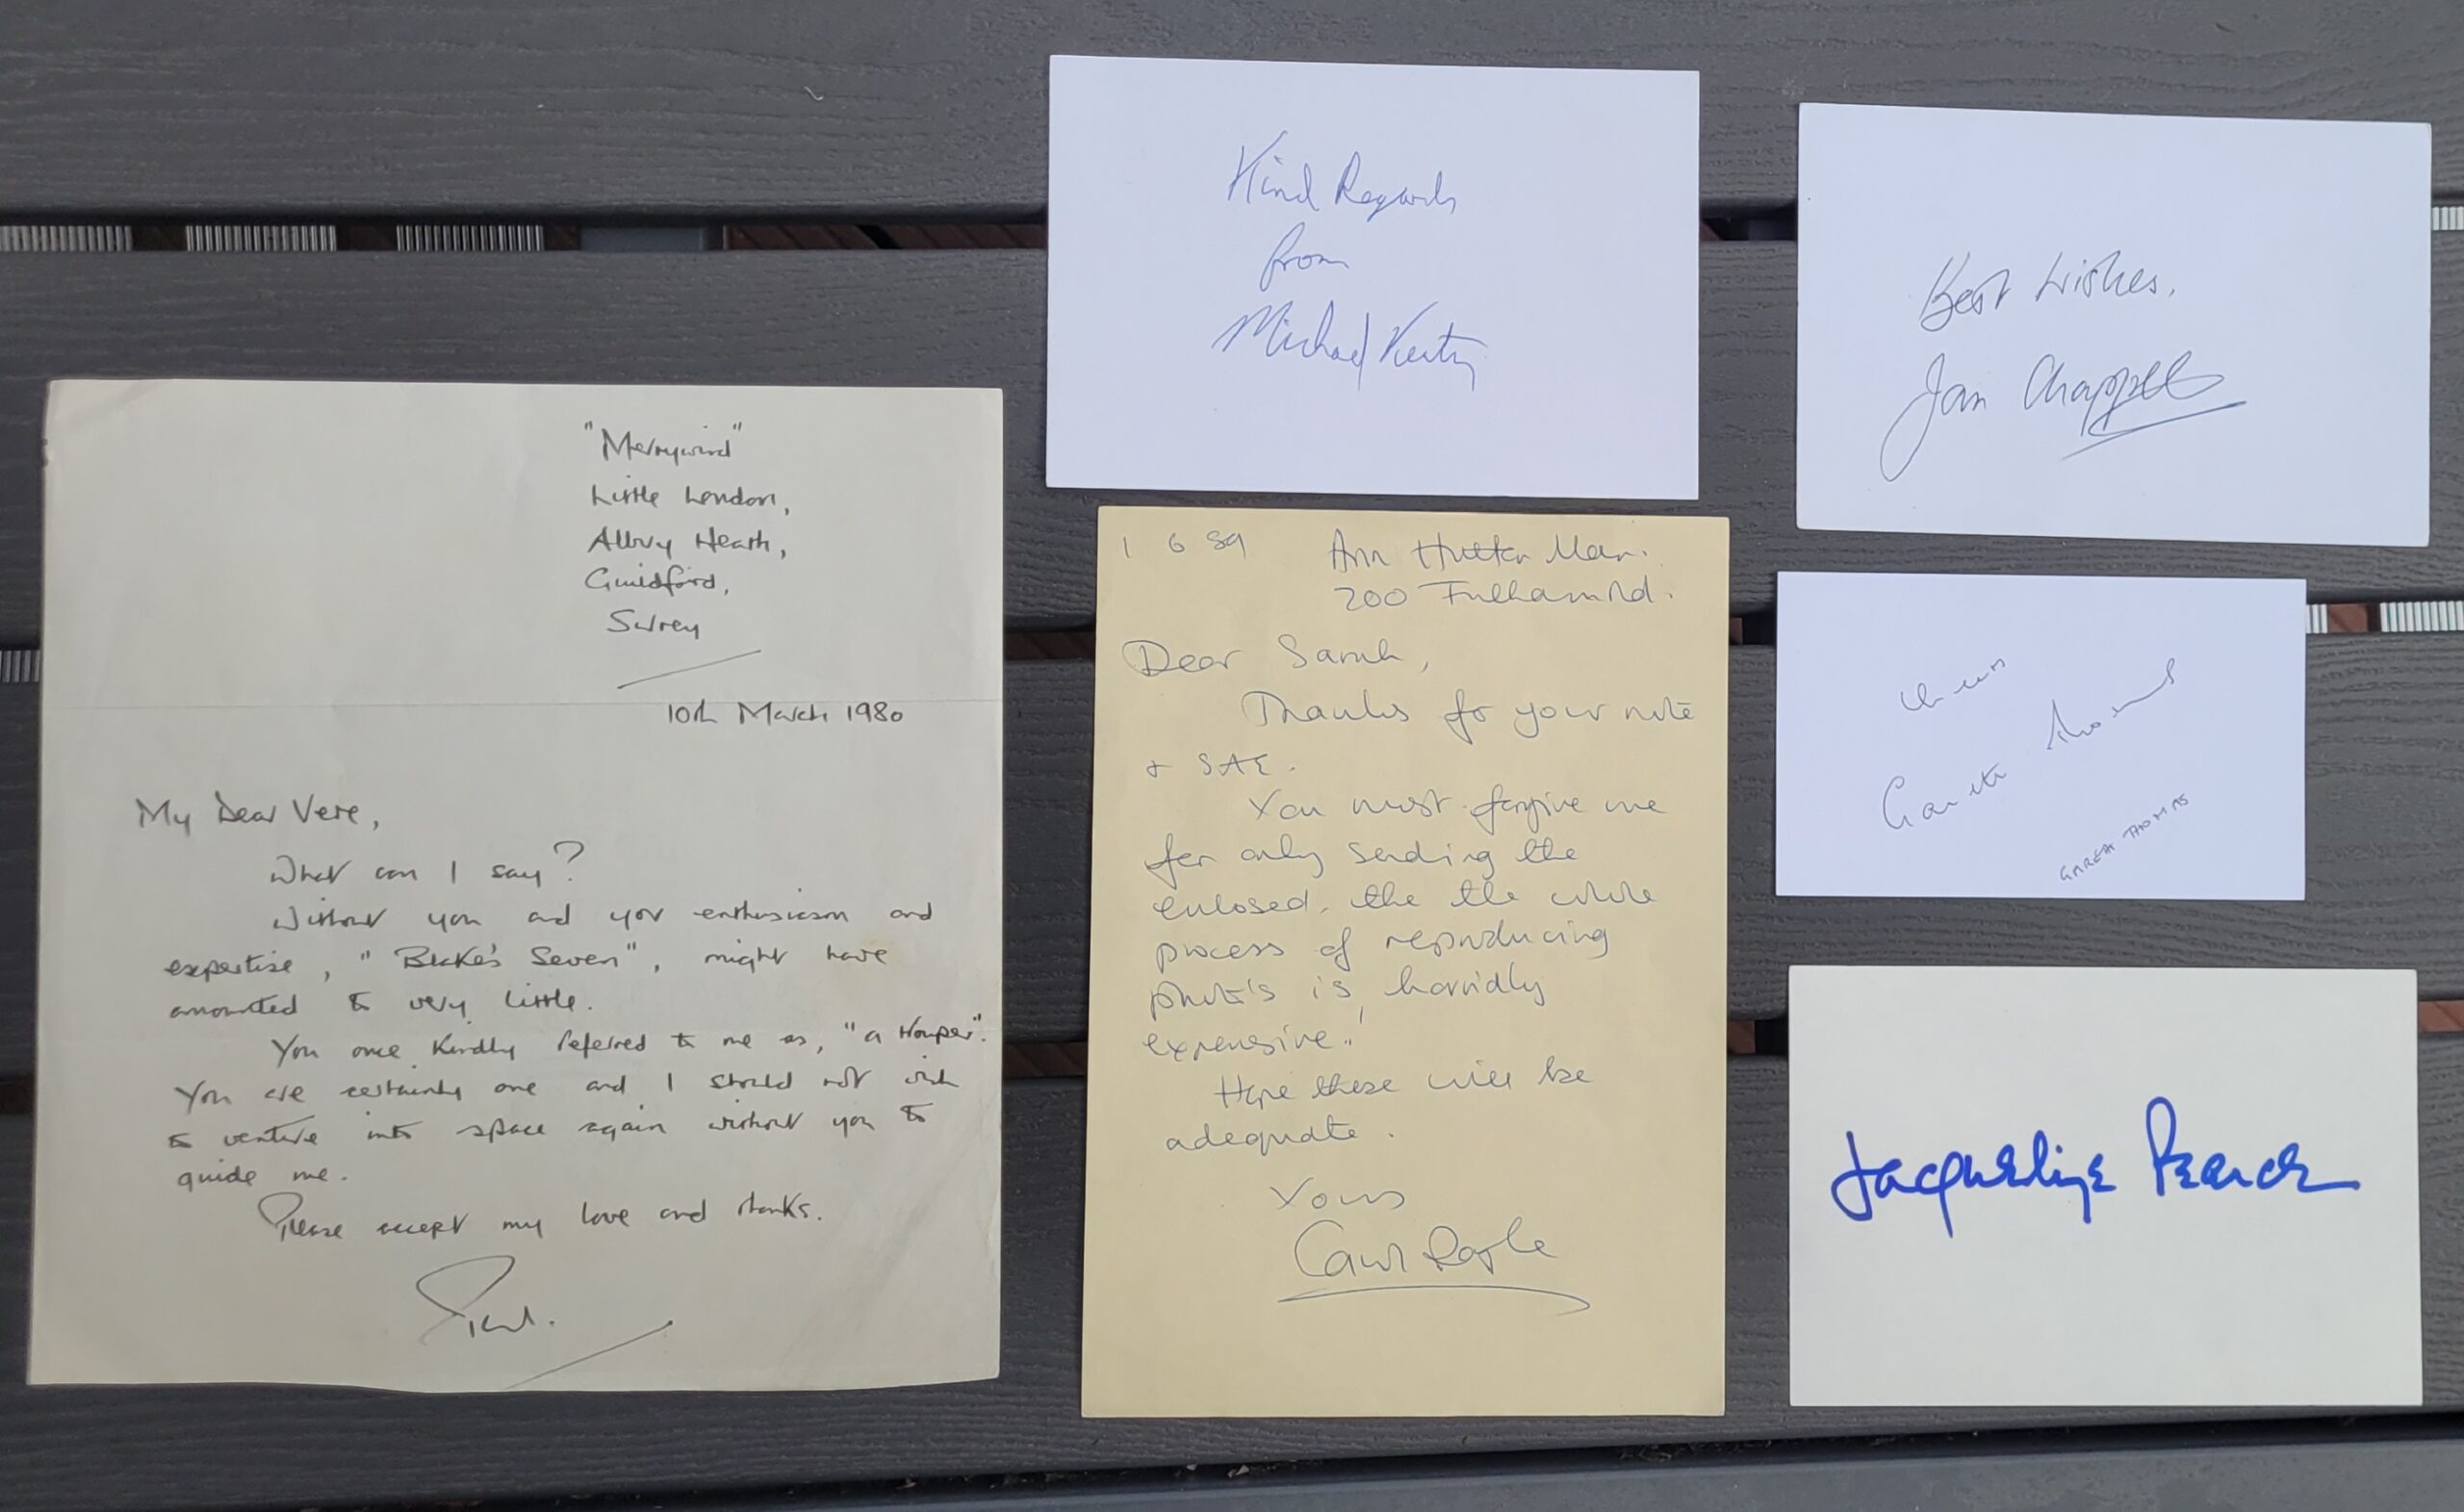 "Merrywind"
Little London,
Albury Heath,
Guildford,
Surrey
10th March 1980
My Dear Vere,
What can I say?
Without you and your enthusiasm and
expertise, "Blake's Seven", might have
amounted to very little.
You once kindly referred to me as, "a trouper".
You are certainly one and I should not wish
to venture into space again without you to
guide me.
Please accept my love and thanks.
Kind Regards
from
Michael Keating
Best Wishes,
Jan Chappell
1 6 89
Ann Hutton Man.
200 Fulham Rd.
Dear Sarah,
Thanks for your note
+ SAE.
You must forgive me
for only sending the
enlosed, the the whole
process of reproducing
photo's is horridly
expensive!
Hope these will be
adequate.
Yours
Carol Royle
Gareth Thomas
GARETH THOMAS
Jacqueline Pearce